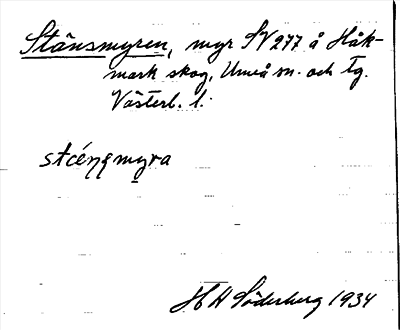 Stänsmyren, myr SV 277 å Håk-
mark skog, Umeå sn. och tg.
Västerb. l.
H H Söderberg 1934